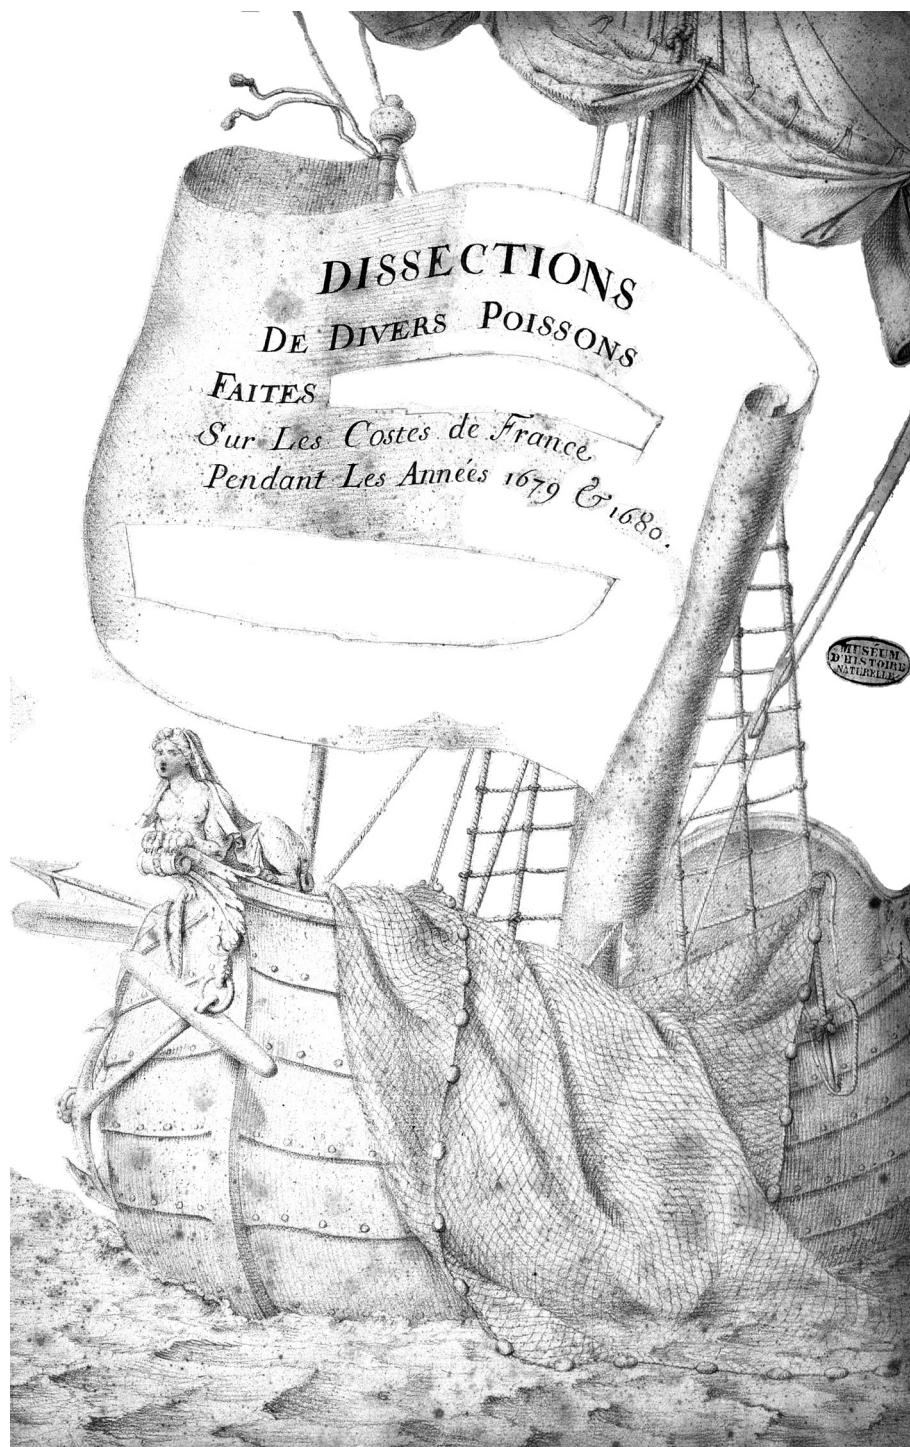 DISSECTIONS
DE DIVERS POISSONS
FAITES
Sur Les Costes de France
Pendant Les Années 1679 & 1680.
MUSÉUM
D'HISTOIRE
NATURELLE